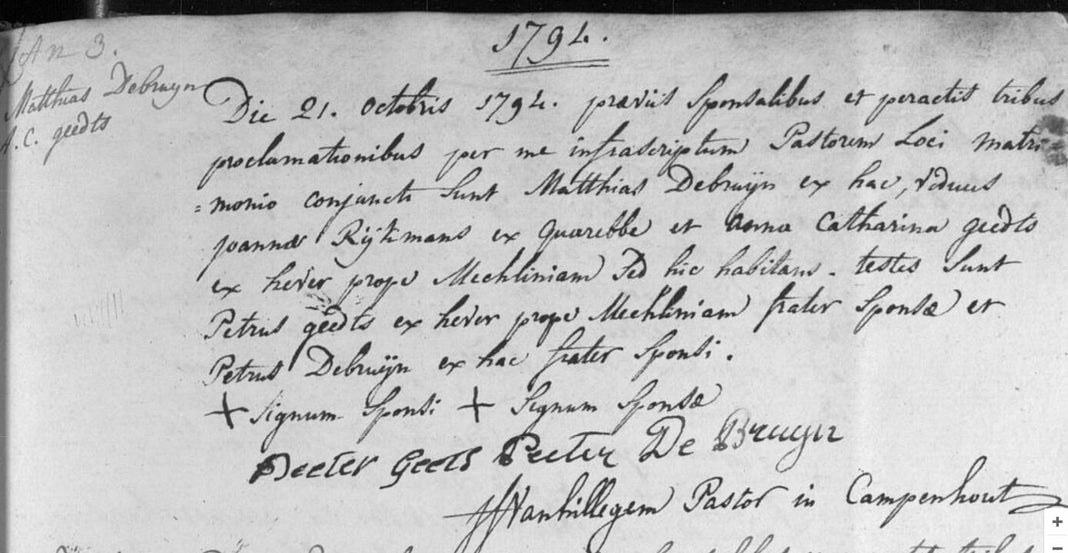 1794.
An 3.
Matthias Debruyn
A. C. geedts
Die 21. octobris 1794. præviis sponsalibus et peractis tribus
proclamationibus per me infrascriptum Pastorem Loci matri
= monio conjuncti sunt Matthias Debruijn ex hac, viduus
joannæ Rijkmans ex quarebbe et anna Catharina geedts
ex hever prope Mechliniam sed hic habitans. testes sunt
Petrus geedts ex hever prope Mechliniam frater sponsæ et
Petrus Debruijn ex hac frater sponsi.
+ signum sponsi + signum sponsæ
Peeter Geets Peeter De Bruyn
Vanhillegem Pastor in Campenhout